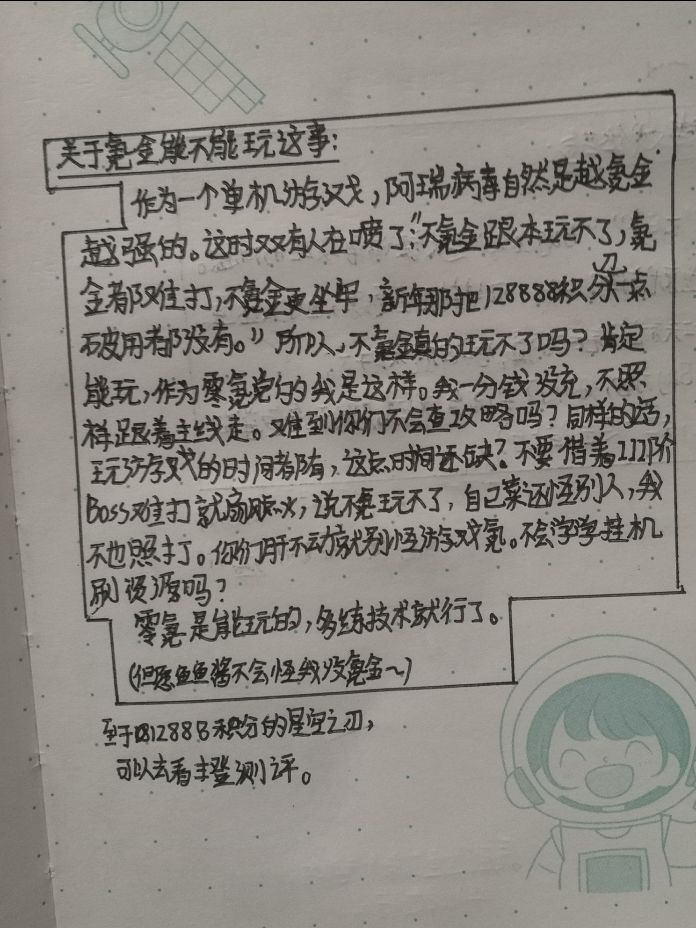 关于氪金能不能玩这事：
作为一个单机游戏，阿瑞病毒自然是越氪金
越强的。这时又又有人在喷了："不氪金跟本玩不了，氪
金都难打，不氪金更坐牢，新年那把128888积分刃一点
破用都没有。"所以，不氪金真的玩不了吗？肯定
能玩，作为零氪党的我是这样。我一分钱没充，不照
样跟着主线走。难到你们不会查攻略吗？同样的话，
玩游戏的时间都有，这点时间还缺？不要借着III阶
Boss难打就扇点火，说不氪玩不了，自己菜还怪别人，我
不也照打。你们肝不动就别怪游戏氪。不会学学挂机
刷资源吗？
零氪是能玩的，多练技术就行了。
（但愿鱼鱼酱不会怪我没氪金～）
至于积分的星空之刃，
可以去看主登测评。